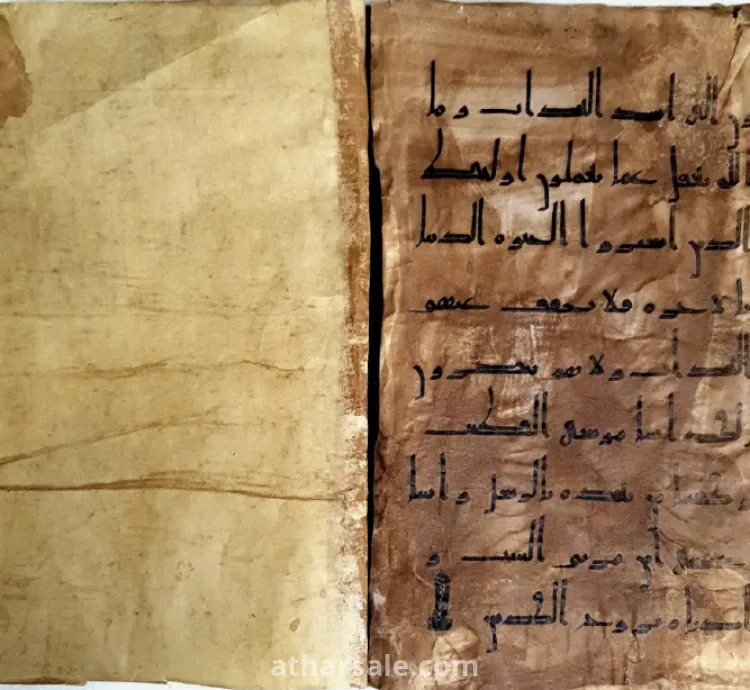 ون الى اشد العذاب و ما
الله بغفل عما تعملون اولئك
الذين اشتروا الحيوه الدنيا
بالاخره فلا يخفف عنهم
العذاب ولا هم ينصرون
ولقد اتينا موسى الكتب
وقفينا من بعده بالرسل و اتينا
عيسى ابن مريم البينت و
ايدناه بروح القدس ا
atharsale.com